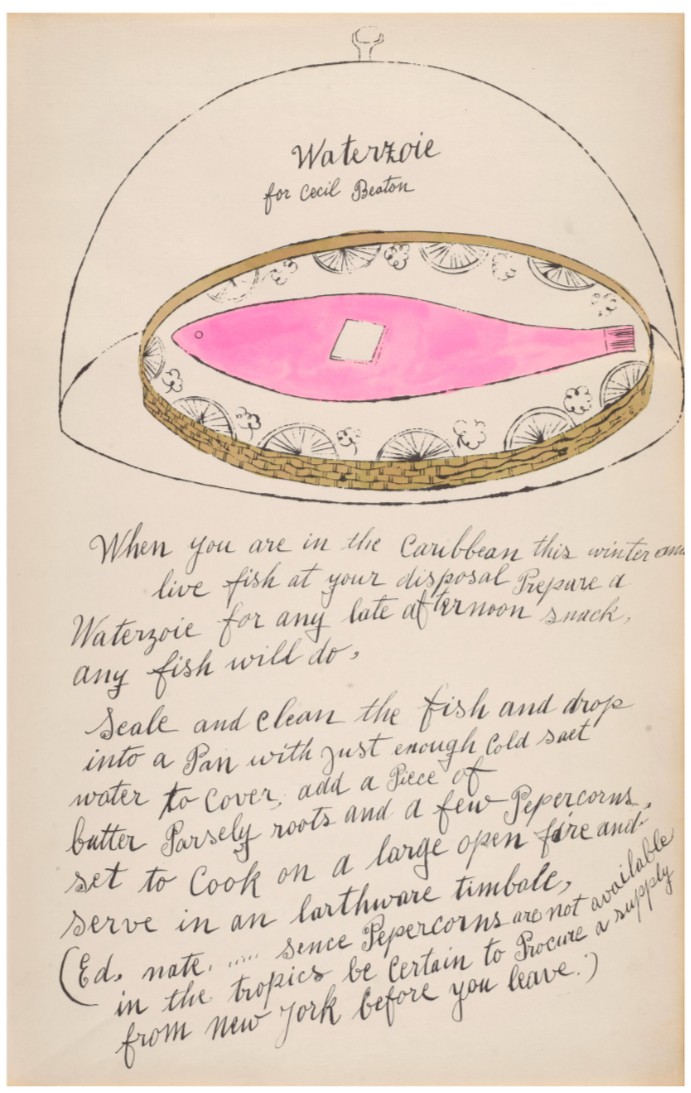 Waterzoie
for Cecil Beaton
When you are in the Caribbean this winter and
live fish at your disposal Prepare a
Waterzoie for any late afternoon snack,
any fish will do,
Scale and clean the fish and drop
into a Pan with just enough Cold salt
water to Cover, add a Piece of
butter Parsely roots and a few Pepercorns,
set to Cook on a large open fire and
serve in an Earthware timbale,
(Ed. nate. ..... sence Pepercorns are not available
in the tropics be Certain to Procure a supply
from New York before you leave.)